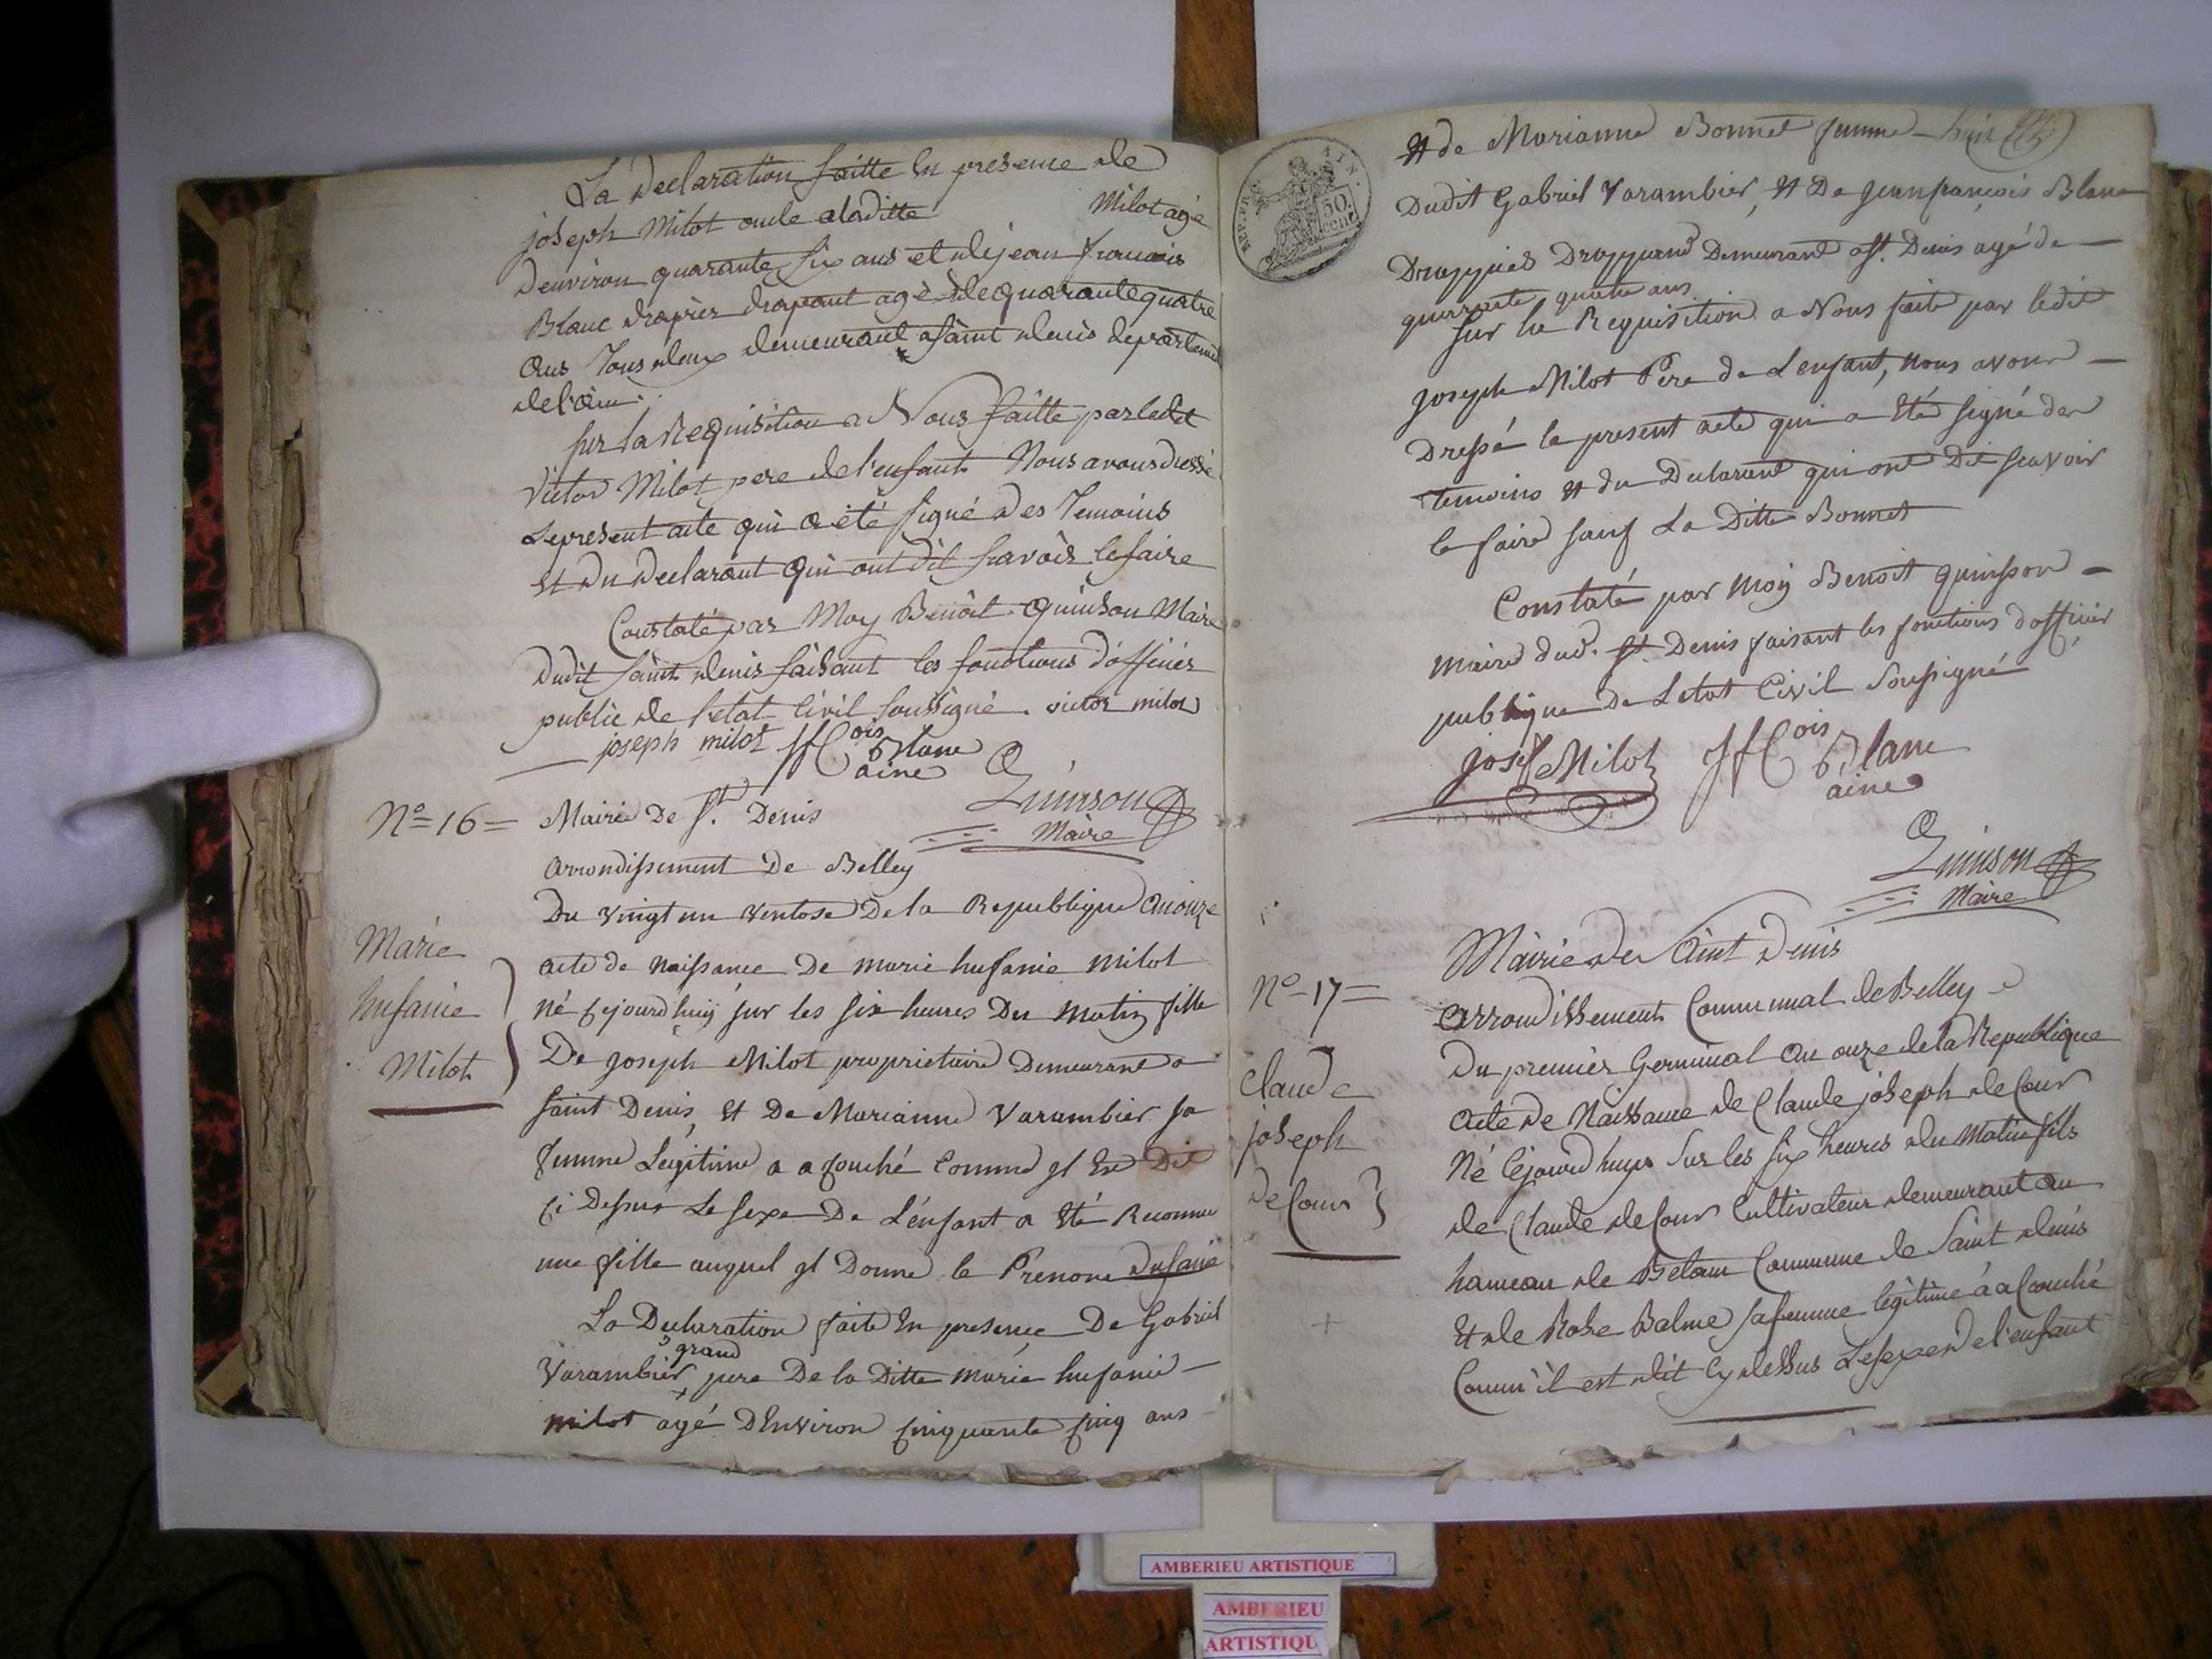 La Declaration faitte En presence de
joseph Milot oncle a laditte Milot agé
d'environ quarante six ans et de jean francois
Blanc drapier drapant agé de quarante quatre
ans Tous deux demeurant a saint denis departement
de l'ain.
sur la Requisition a Nous faitte par ledit
Victor Milot pere de l'enfant Nous avons dressé
Le present acte qui a été signé des Temoins
et du declarant qui ont dit scavoir le faire
Constaté par Moy Benoit Quinson Maire
dudit saint denis faisant les fonctions d'officier
public de l'etat Civil soussigné. victor milot
joseph milot Blanc
ainé
Quinson
Maire
Nº=16=
Mairie De St. Denis
arrondissement De Belley
Du vingt un ventose De la Republique an onze
Marie
hufanie
Milot
acte de Naissance De marie hufanie Milot
né Cejourd'huy sur les six heures Du Matin fille
De joseph Milot proprietaire Demeurant a
saint Denis, et De Marianne Varambier sa
femme Legitime a acouché comme jl Est Dit
Ci Dessus Le sexe De L'enfant a Eté Reconnu
une fille auquel jl Donne le Prenom
La Declaration faite En presence De Gabriel
grand
Varambier pere De la Ditte marie hufanie
milot agé D'Environ Cinquante Cinq ans
AIN.
50.
cent
REP. FRA
et de Marianne Bonnet femme
Dudit Gabriel Varambier, et De jean françois Blanc
Drappier Drappand Demeurant a St. Denis agé de
quarante quatre ans
sur la Requisition a Nous faite par ledit
joseph Milot Pere de L'enfant, nous avons
Dressé le present acte qui a Eté signé des
temoins et du Declarant qui ont Dit scavoir
le faire sauf La Ditte Bonnet
Constaté par Moy Benoit quinsson
Maire dud. St. Denis faisant les fonctions d'officier
publique De L'etat Civil Soussigné
josef Milot Blanc
ainé
Quinson
Maire
Mairie de saint denis
Nº-17=
arrondissement Communal de Belley
Du premier Germinal an onze de la Republique
Claude
joseph
de Cour
acte de Naissance de Claude joseph de Cour
Né Cejourd'huy sur les six heures du Matin fils
de Claude de Cour Cultivateur demeurant au
hameau de Commune de Saint denis
Et de Rose Balme sa femme légitime á acouché
Comm'il est dit Cy dessus Le sexe de l'enfant
AMBERIEU ARTISTIQUE
AMBERIEU
ARTISTIQU